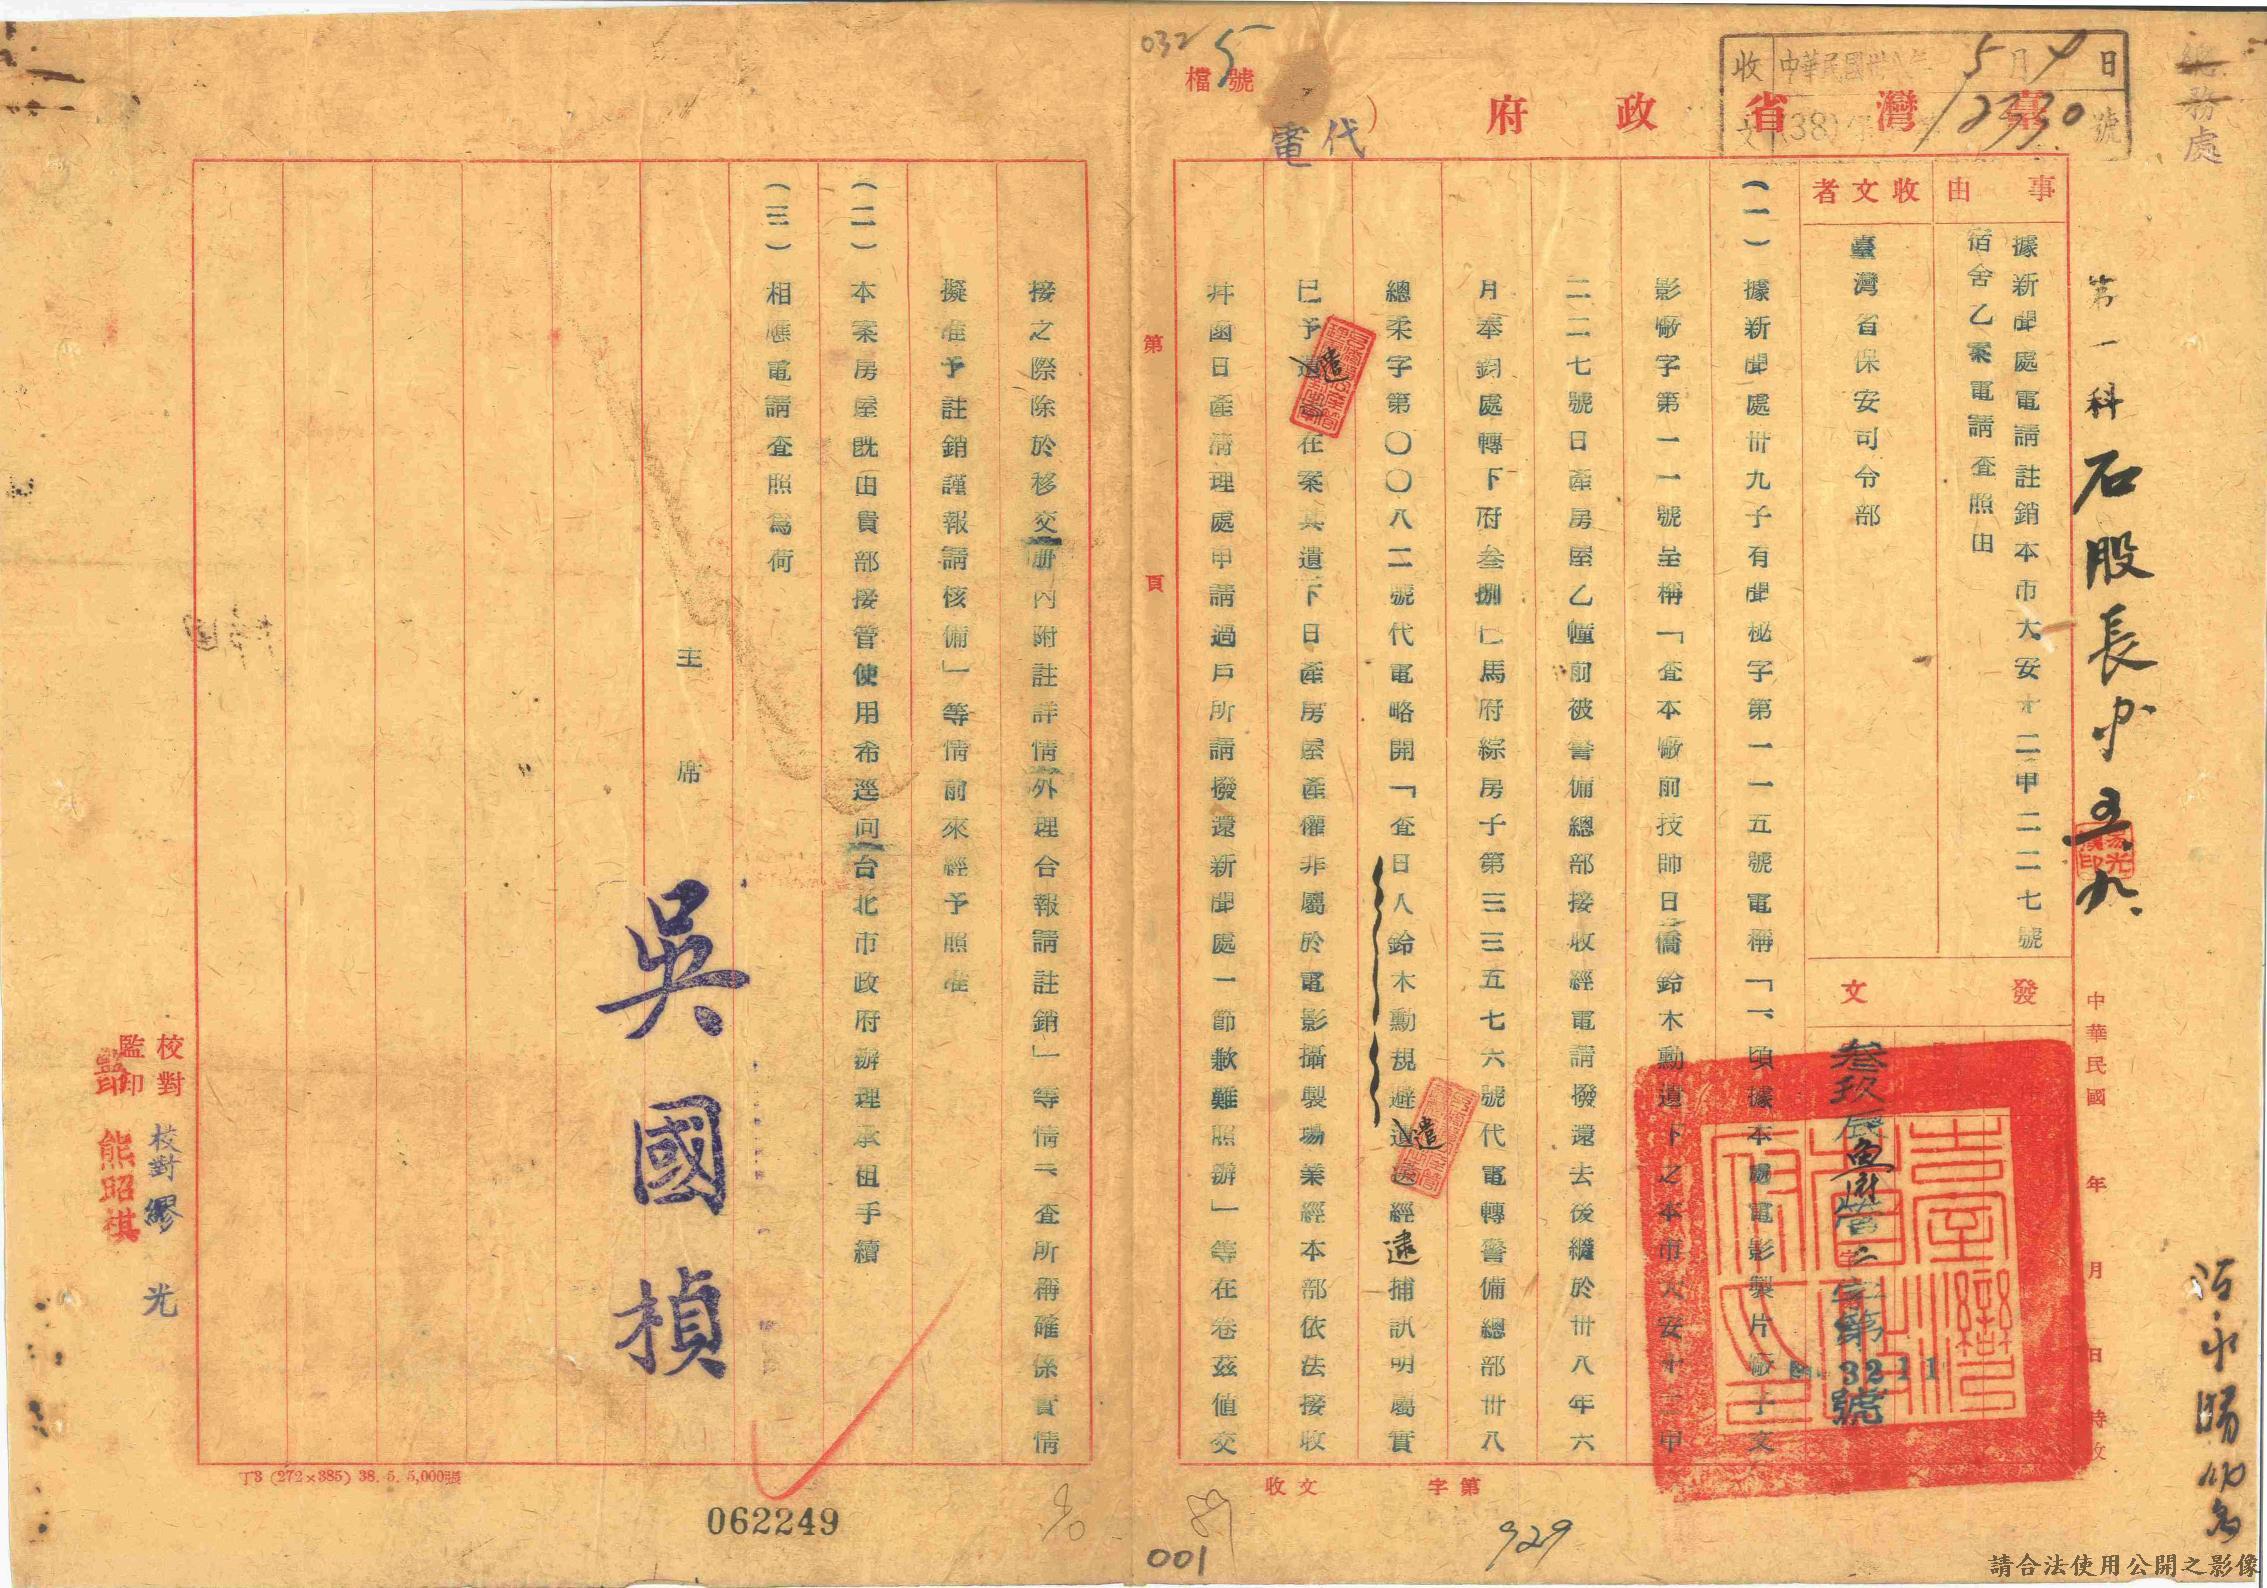 總務處
收 中華民國卅八年 5月4日
收文 (38) 12330 號
臺灣省政府
代電
檔號
032
5
第一科
石股長
五.九.
事由
據新聞處電請註銷本市大安十二甲二二七號
宿舍乙案電請查照由
收文者
臺灣省保安司令部
發文
中華民國 年 月 日 時收
叁玖辰魚府營二字第
3211
號
(一)據新聞處卅九子有聞秘字第一一五號電稱「一、頃據本處電影製片廠子文
影廠字第一一號呈稱「查本廠前技師日僑鈴木勳遺下之本市大安十二甲
二二七號日產房屋乙幢前被警備總部接收經電請撥還去後繼於卅八年六
月奉鈞處轉下府叁捌巳馬府綜房子第三三五七六號代電轉警備總部卅八
總柔字第〇〇八二號代電略開「查日人鈴木勳規避遣送經逮捕訊明屬實
已予遣 在案其遺下日產房屋產權非屬於電影攝製場業經本部依法接收
并函日產清理處申請過戶所請撥還新聞處一節歉難照辦」等在卷茲值交
接之際除於移交册內附註詳情外理合報請註銷」等情二、查所稱確係實情
擬准予註銷謹報請核備」等情前來經予照准
(二)本案房屋既由貴部接管使用希逕向台北市政府辦理承租手續
(三)相應電請查照為荷
主席
吳國楨
校對
監印
校對 繆光
監印 熊昭祺
第 頁
收文 字第
丁3 (272×385) 38. 5. 5,000張
062249
001
929
請合法使用公開之影像